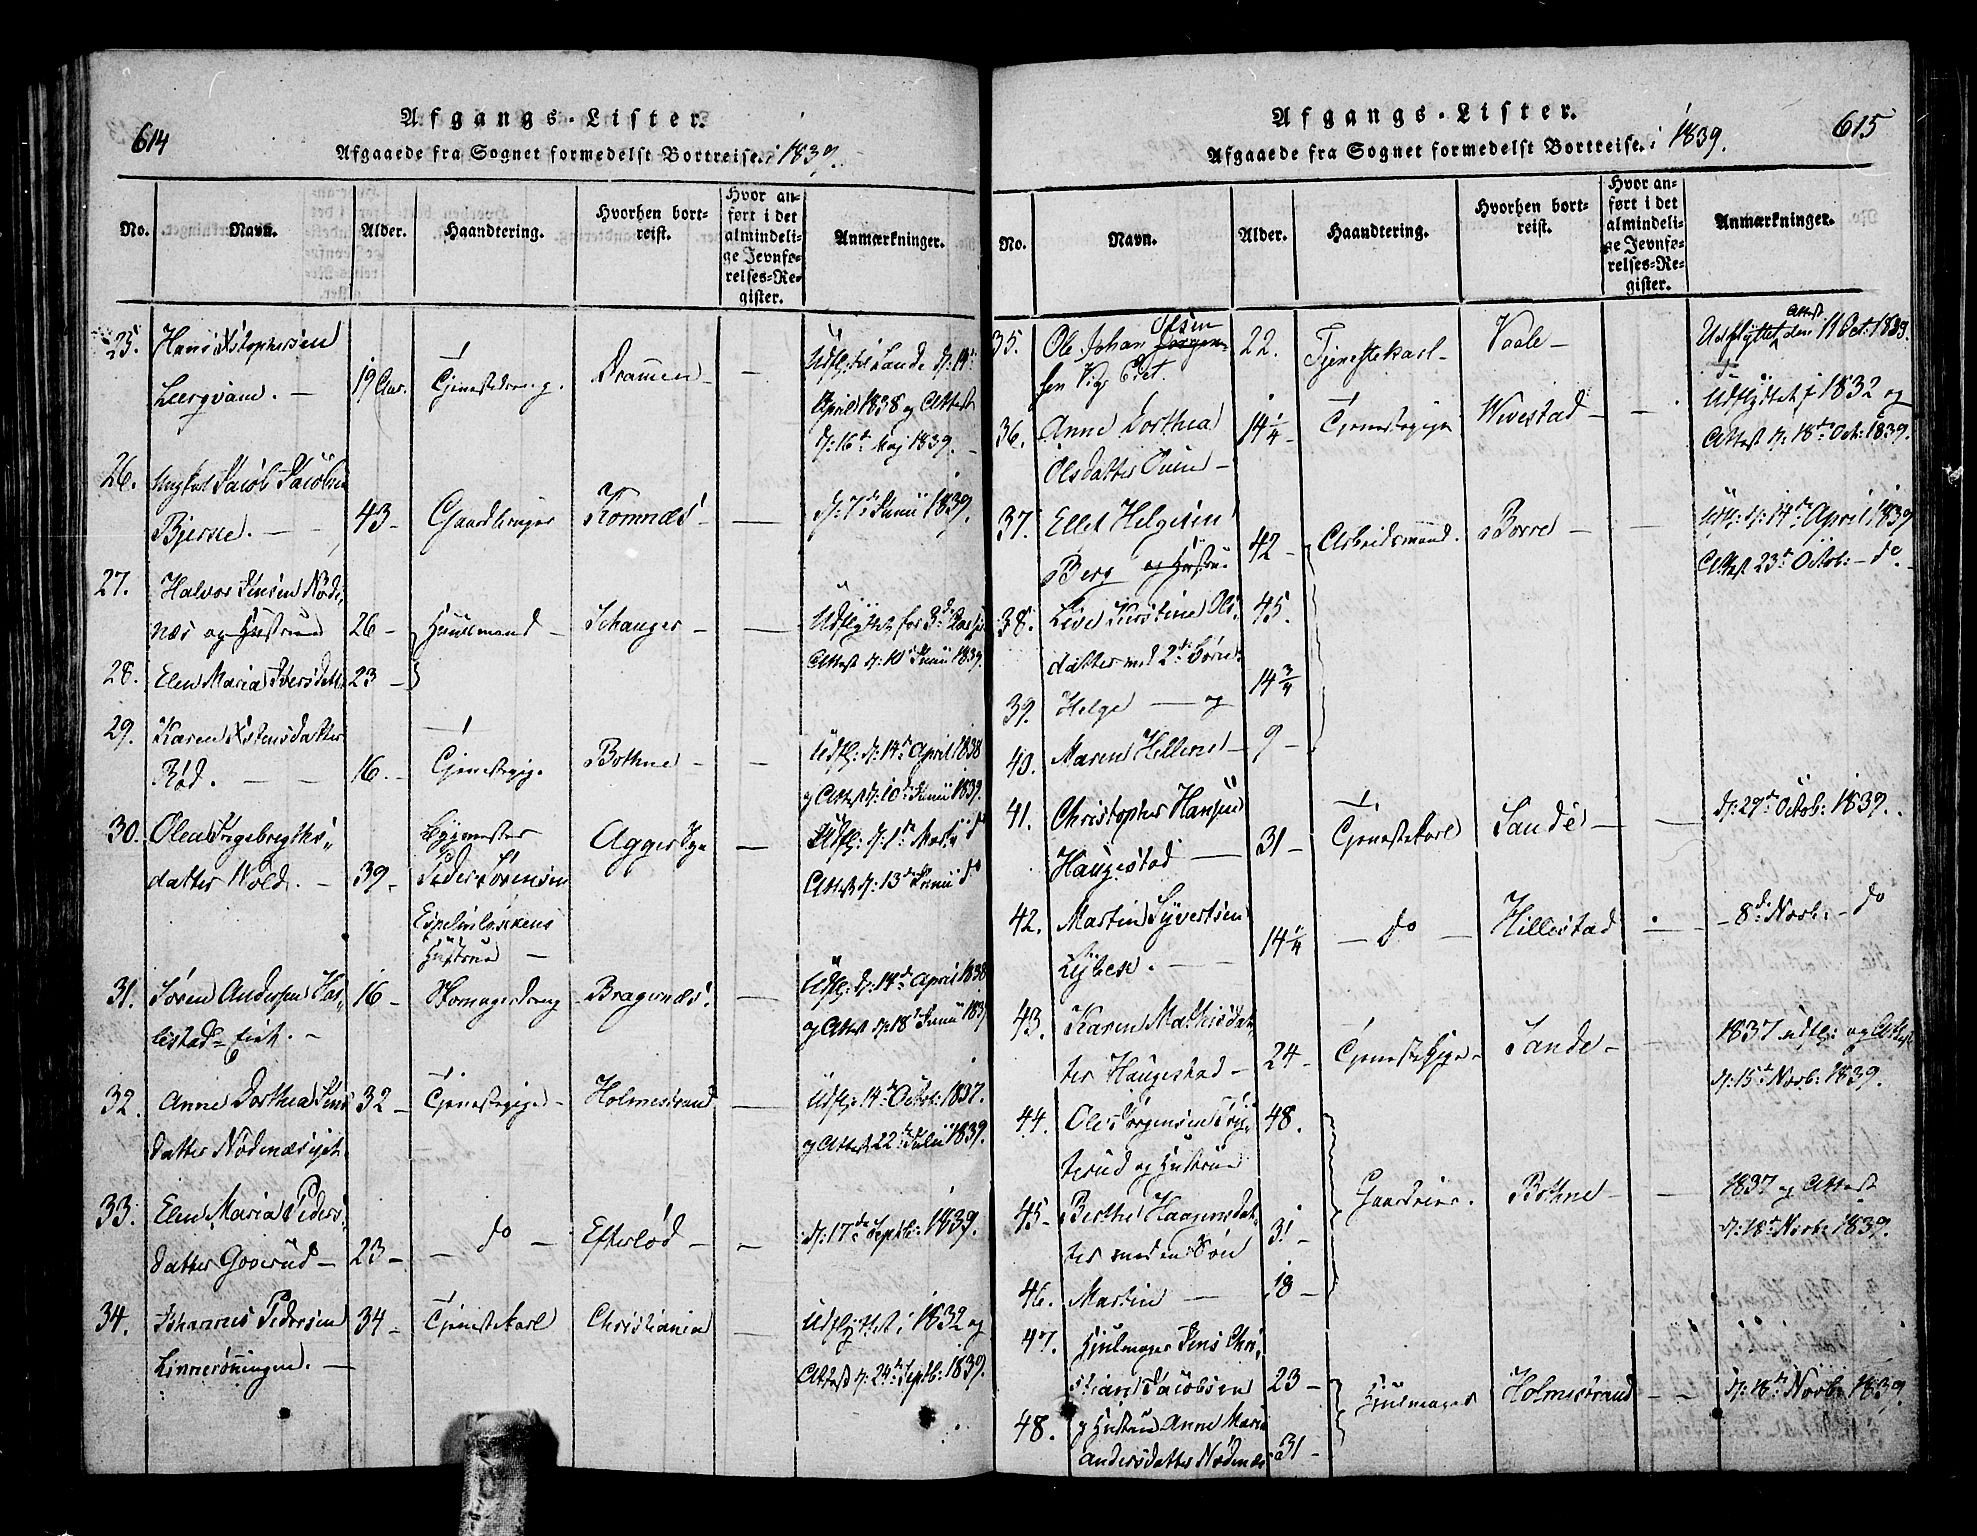 614
Afgangs-Lister.
Afgaaede fra Sognet formedelst Bortreise. i 1839.
No.
Navn.
Alder.
Haandtering.
Hvorhen bort-
reist.
Hvor an-
ført i det
almindeli-
ge Jevnfø-
relses-Re-
gister.
Anmærkninger.
25. Hans Xstophersen
Leergvam. — 19 Aar. Tjenestedreng. Dramen — —
Udfl: til Sande d: 14de
April 1838 og Attest
d: 16de Maj 1839. —
26. Ungkarl Jacob Jacobsen
Bjerøe. — 43 — Gaardbruger Komnæs — —
d: 7de Junii 1839.
27. Halvor Jensen Nøde,
næs og Hustrue 26 — Huusmand — — —
Udflyttet for 3de Aar siden
Attest d: 10de Junii 1839.
28. Elen Maria Iversdatt: 23 —
29. Karen Xstensdatter
Rød. — — 16. — Tjenestepige Bothne — —
Udfl: d: 14de April 1838
og Attest d: 10de Junii 1839.
30. Olea Ingebregths,
datter Wold. — 39 — Bygmester
Peder Sørensen
Hustrue —
Aggers —
Udfl: d: 1de Marts do
Attest d: 13de Junii do
31. Søren Andersen Hal,
lestad-eiet. — 16 — Skomagerdreng Bragernæs. —
Udfl: d: 14de April 1838
og Attest d: 18de Junii 1839
32. Anne Dorthea Jens
datter Nødenæsejet 32 — Tjenestepige — Holmestrand —
Udfl: 14de Octob: 1837.
og Attest 22de Julii 1839.
33. Elen Maria Peders,
datter Goverud — 23 — — do — Efterlød — —
d: 17de Septb: 1839.
34. Johannes Pedersen
Linnerønningen. — 34 — Tjenestekarl Christiania —
Udflyttet i 1832 og
Attest d: 24de Septb: 1839.
615
Afgangs-Lister.
Afgaaede fra Sognet formedelst Bortreise. i 1839.
No.
Navn.
Alder.
Haandtering.
Hvorhen bort-
reist.
Hvor an-
ført i det
almindeli-
ge Jevnfø-
relses-Re-
gister.
Anmærkninger.
35. Ole Johan Jørgen- Olsen
sen Vigs Eiet. 22. Tjenestekarl — Vaale —
Udflyttet Attest den 11 Oct: 1839.
36. Anne Dorthea
Olsdatter — 14 1/4 — Tjenestepige Wivestad — —
Udflydtet i 1832 og
Attest d: 18de Oct: 1839.
37. Ellef Helgesen
Berg og Hustru. 42 — Arbeidsmand. Borre — —
Udfl: d: 14de April 1839
Attest 23de Octob: — do —
38. Live Kirstine Ols
datter med 2de Børn: 45.
39. Helge — og 14 3/4
40. Maren Hellene — 9 —
41. Christopher Hansen
Haugestad — 31 — Tjenestekarl Sande — —
d: 29de Octob: 1839.
42. Martin Syvertsen
— 14 1/4 — do — Hillestad —
— 8de Novb: — do
43. Karen Mathisdat,
ter Haugestad — 24 — Tjenestepige — Sande — —
1837 udfl: og Attest
d: 15de Novb: 1839.
44. Ole Jørgensen
og Hustrue 48.
45 — Berthe Haagensdat,
ter med en Søn 31 — Gaardeier. Bothne — —
1837 og Attest
d: 18de Novb: 1839.
46. Martin — 18 —
47. Hjulmager Jens Chri,
stian Jacobsen 23 — Hjulmager Holmestrand — —
d: 18de Novb: 1839.
48. og Hustrue Anne Maria
Andersdatter Nødenæs 31 —